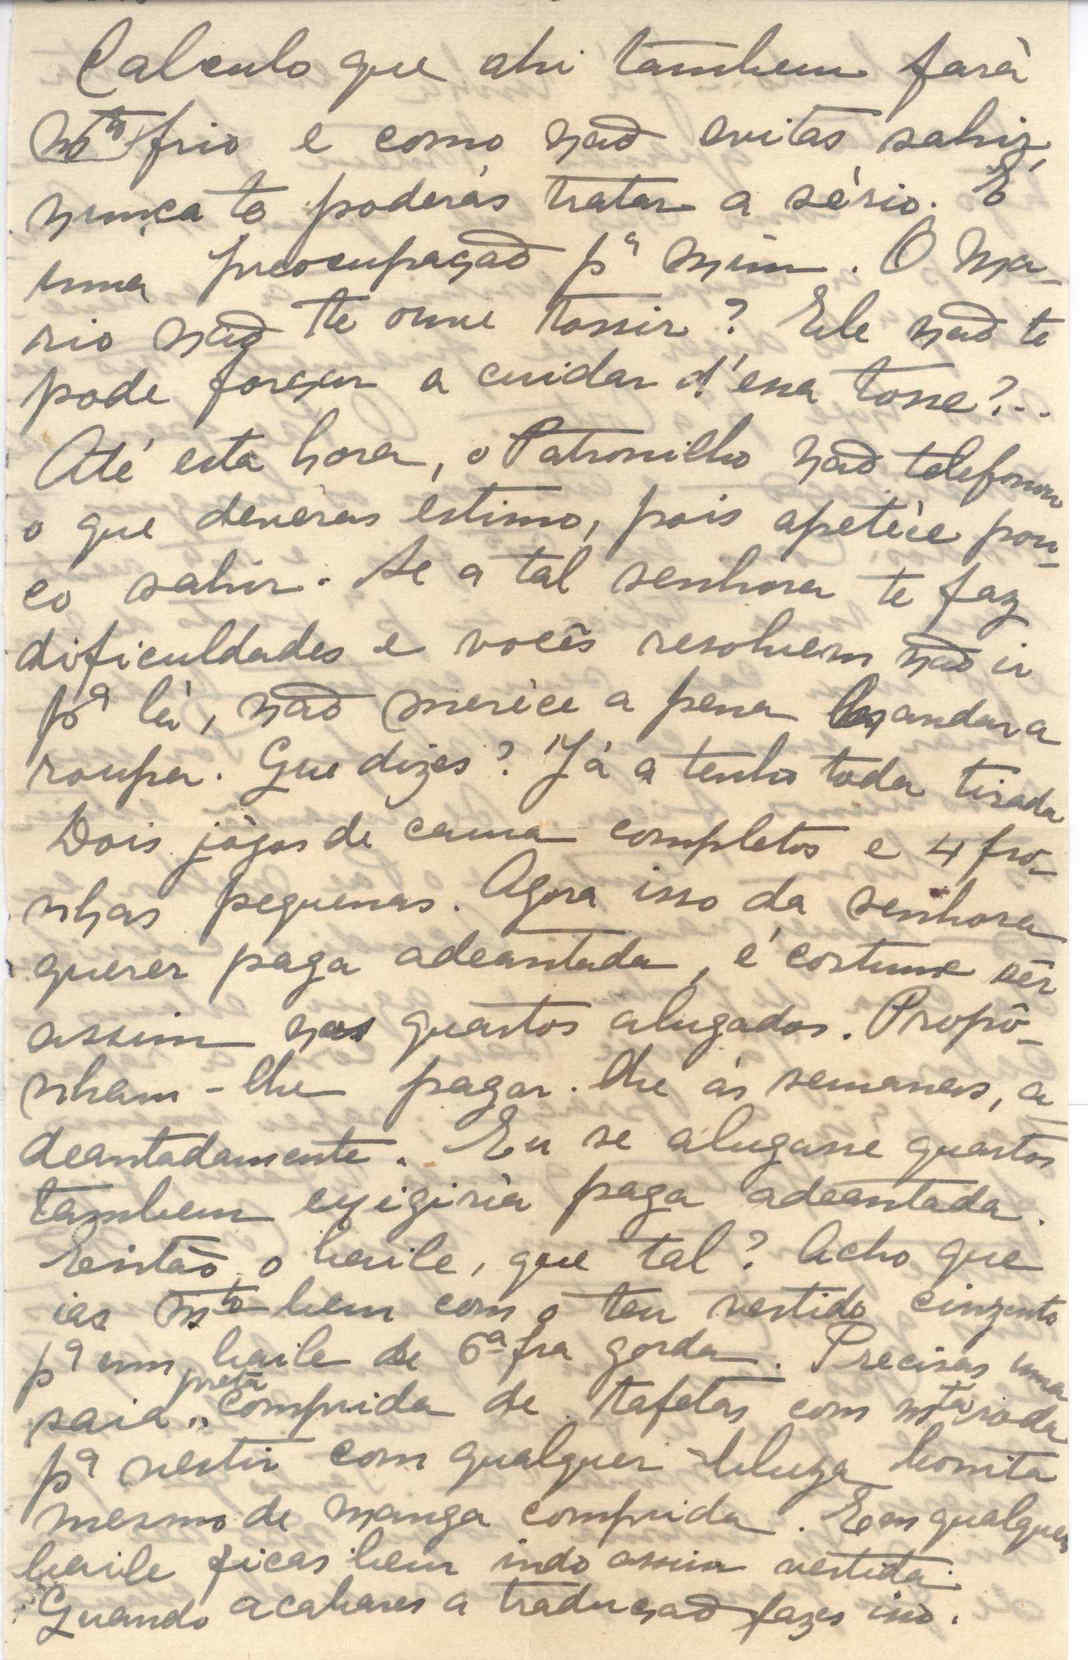 Calculo que ahi tambem farà
mto frio e como não evitas sahir,
nunca te poderás tratar a sério. E
uma preocupação pa mim. O Ma-
rio não te ouve tossir? Ele não te
pode forçar a cuidar d'essa tosse?...
Até esta hora, o Patronilho não telefonou
o que devéras estimo, pois apetéce pou-
co sahir. Se a tal senhora te faz
dificuldades e vocês resolvem não ir
pa lá, não meréce a pena mandar a
roupa. Que dizes? Já a tenho toda tirada
Dois jógos de cama completos e 4 fro-
nhas pequenas. Agora isso da senhora
querer paga adeantada, é costume sêr
assim nos quartos alugados. Propô-
nham-lhe pagar-lhe ás semanas, a-
deantadamente. Eu se alugasse quartos
tambem exigiria paga adeantada.
Então o baile, que tal? Acho que
ias mto bem com o teu vestido cinzento
pa um baile de 6a fra gorda. Precisas uma
saia preta comprida de tafetas com mta roda
pa vestir com qualquer bluza bonita
mesmo de manga comprida. Em qualquer
baile ficas bem indo assim vestida.
Quando acabares a tradução fazes isso.